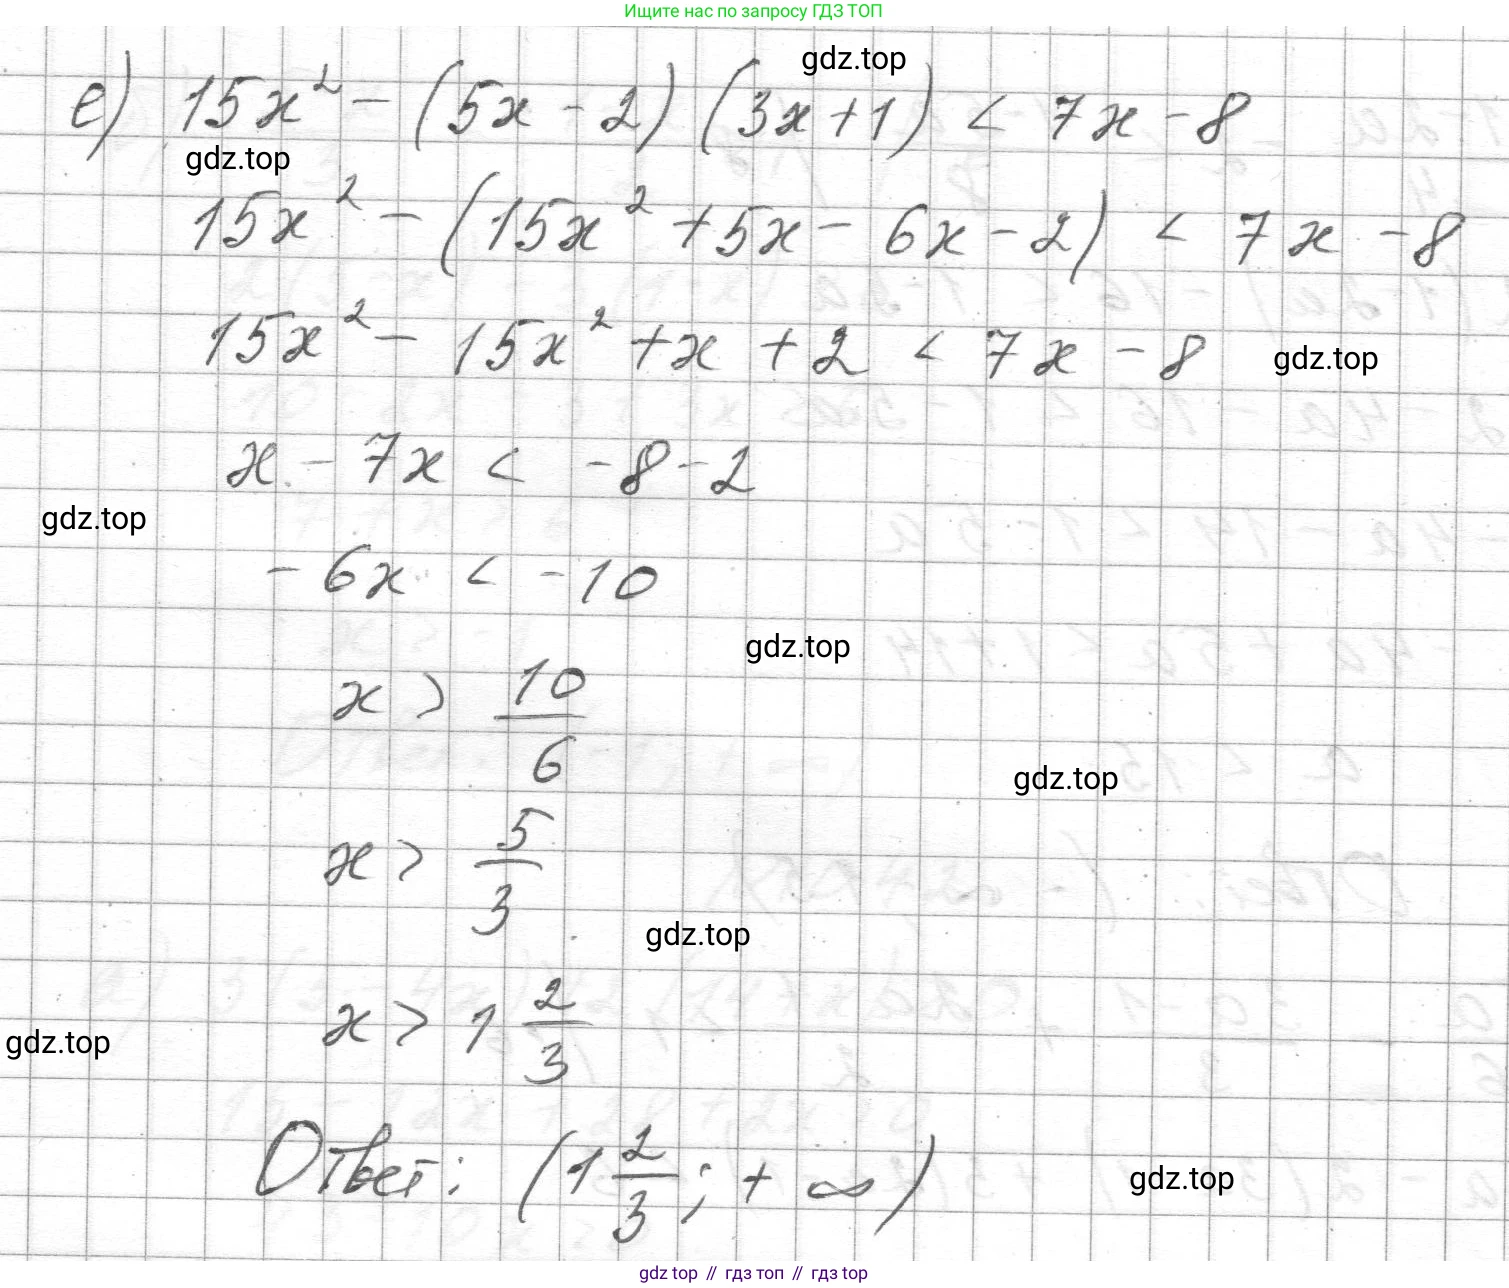 Ищите нас по запросу ГДЗ ТОП
gdz.top
е) 15x² - (5x - 2) (3x + 1) < 7x - 8
gdz.top
15x² - (15x² + 5x - 6x - 2) < 7x - 8
15x² - 15x² + x + 2 < 7x - 8
gdz.top
x - 7x < -8 - 2
gdz.top
- 6x < -10
gdz.top
x > 10/6
gdz.top
x > 5/3
gdz.top
x > 1 2/3
gdz.top
Ответ: (1 2/3; + ∞)
gdz.top
gdz top // гдз топ // гдз top